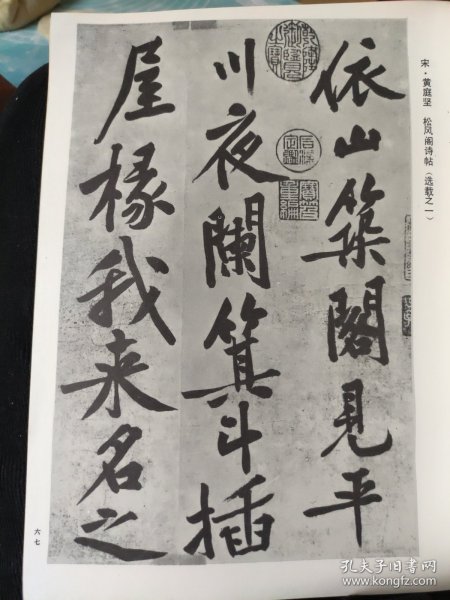 宋·黄庭坚 松风阁诗帖（选载之一）
依山築閣見平
川夜闌箕斗插
屋椽我来名之
六七
孔夫子旧书网
www.kongfz.com